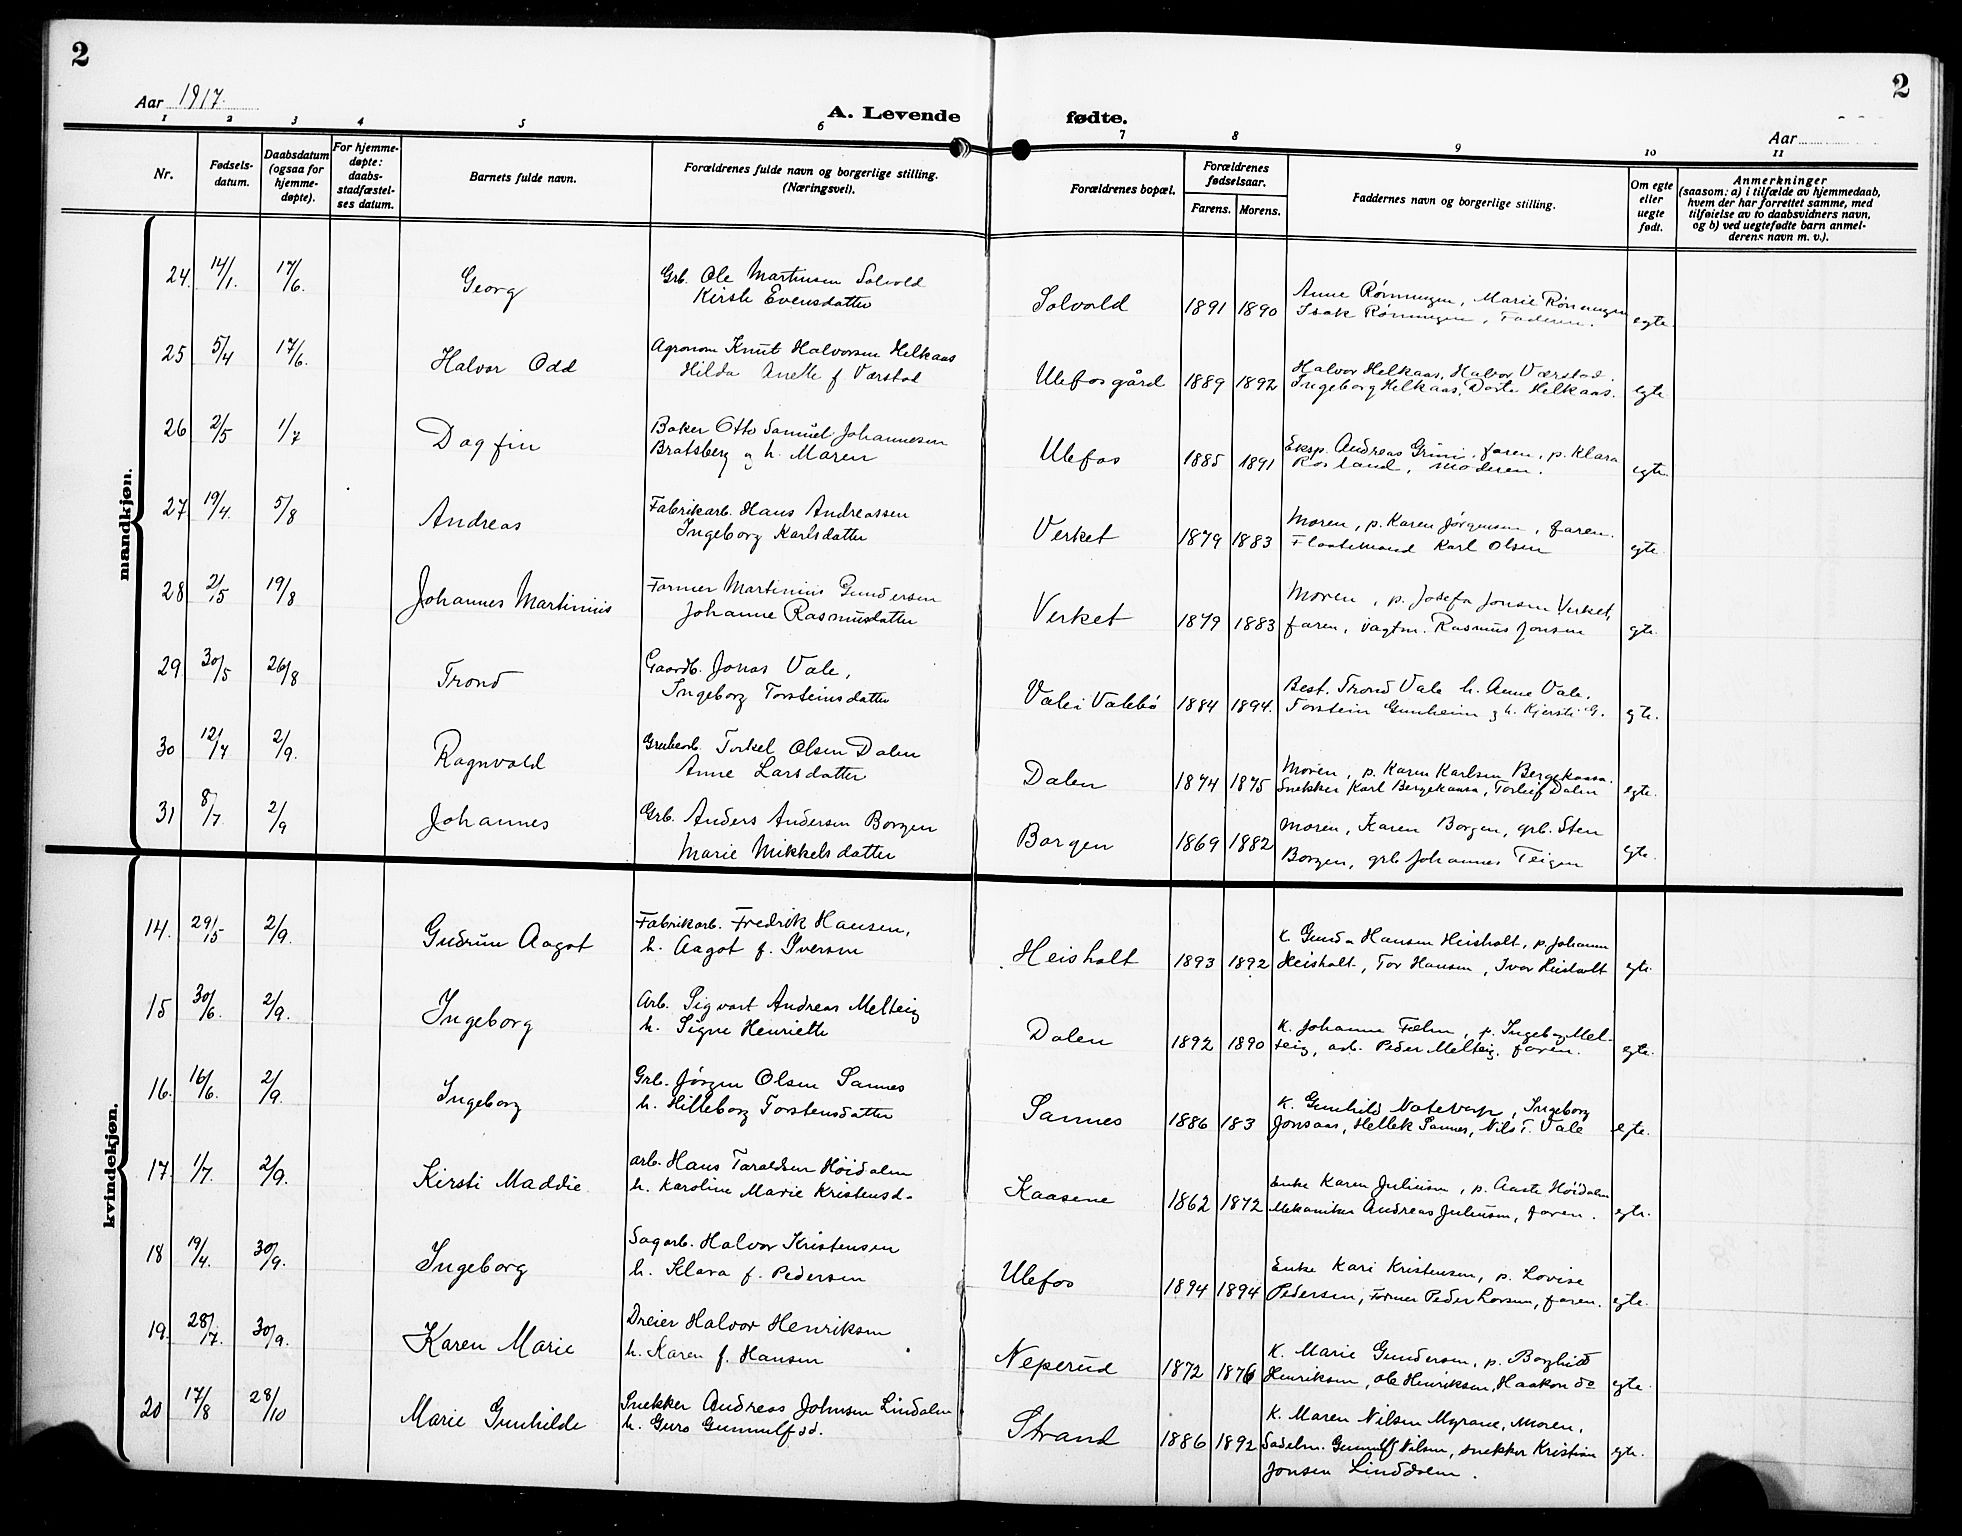 2
2
Aar 1917.
A. Levende
fødte.
Aar
1 2 3 4 5 6 7 8 9 10 11
Nr.
Fødsels-
datum.
Daabsdatum
(ogsaa for
hjemme-
døpte).
For hjemme-
døpte:
daabs-
stadfæstel-
ses datum.
Barnets fulde navn.
Forældrenes fulde navn og borgerlige stilling.
(Næringsvei).
Forældrenes bopæl.
Forældrenes
fødselsaar.
Farens. Morens.
Faddernes navn og borgerlige stilling.
Om egte
eller
uegte
født.
Anmerkninger
(saasom: a) i tilfælde av hjemmedaab,
hvem der har forrettet samme, med
tilføielse av to daabsvidners navn,
og b) ved uegtefødte barn anmel-
derens navn m. v.).
mandkjøn.
24. 14/1. 17/6. Georg
Grb. Ole Martinsen Solvold
Kirsti Evensdatter
Solvold 1891 1890
Anne Rønningen, Marie Rønningen
Isak Rønningen, Faderen.
egte
25 5/4 17/6. Halvor Odd
Agronom Knut Halvorsen Helkaas
Hilda Anette f. Værstad
Ulefosgård 1889 1892
Halvor Helkaas, Halvor Værstad.
Ingeborg Helkaas, Dorte Helkaas.
egte
26 2/5 1/7 Dagfin
Baker Otto Samuel Johannesen
Bratsberg og h. Maren
Ulefos 1885 1891
Eksp. Andreas Grini, faren, p. Klara
Rosland, moderen.
egte
27 19/4. 5/8 Andreas
Fabrikarb. Hans Andreassen
Ingeborg Karlsdatter
Verket 1879 1883
Moren, p. Karen Jørgensen, faren.
Flaatemand Karl Olsen
egte
28 2/5 19/8 Johannes Martinius
Former Martinius Gundersen
Johanne Rasmusdatter
Verket 1879 1883
Moren, p. Josefa Jonsen Verket,
faren, vagtm. Rasmus Jonsen
egte.
29 30/5 26/8 Trond
Gaardb. Jonas Vale,
Ingeborg Torsteinsdatter
Vale i Valebø 1884 1894.
Best. Trond Vale h. Anne Vale.
Torstein Gunheim og h. Kjersti G.
egte.
30 12/7 2/9. Ragnvald
Grubearb. Torkel Olsen Dalen
Anne Larsdatter
Dalen 1874 1875
Moren, p. Karen Karlsen Bergekaasa.
Snekker Karl Bergekaasa, Torleif Dalen
egte.
31 8/7. 2/9 Johannes
Grb. Anders Andersen Borgen
Marie Mikkelsdatter
Borgen 1869 1882
Moren, Karen Borgen, grb. Sten
Borgen, grb Johannes Teigen
egte.
kvindekjøn.
14. 29/5 2/9. Gudrun Aagot
Fabrikarb. Fredrik Hansen,
h. Aagot f. Iversen
Heisholt 1893 1892
K. Gunda Hansen Heisholt, p. Johanne
Heisholt, Tor Hansen, Ivar Heisholt
egte.
15 30/6 2/9. Ingeborg
Arb. Sigvart Andreas Melteig
h. Signe Henriette
Dalen 1892 1890
K. Johanne Fælen, p. Ingeborg Mel-
teig, arb. Peder Melteig, faren.
egte.
16. 16/6. 2/9. Ingeborg
Grb. Jørgen Olsen Sannes
h. Hilleborg Torstensdatter
Sannes 1886 183
K. Gunhild Nateverp, Ingeborg
Jonsaas, Hellek Sannes, Nils T. Vale
egte.
17. 1/7. 2/9. Kirsti Maddie
arb. Hans Taraldsen Høidalen
h. Karoline Marie Kristensd.
Kaasene 1862 1872
Enke Karen Juliusen, p. Aaste Høidalen
Mekaniker Andreas Juliusen, faren.
egte.
18 19/4. 30/9. Ingeborg
Sagarb. Halvor Kristensen
h. Klara f. Pedersen
Ulefos 1894 1894
Enke Kari Kristensen, p. Lovise
Pedersen, Former Peder Larsen, faren.
egte.
19. 28/7. 30/9. Karen Marie
Dreier Halvor Henriksen
h. Karen f. Hansen
Neperud 1872 1876
K. Marie Gundersen, p. Borghild
Henriksen, Ole Henriksen, Haakon do
egte.
20 17/8 28/10 Marie Gunhilde
Snekker Andreas Johnsen Lindalen
h. Guro Gunnulfsd.
Strand 1886 1892
K. Maren Nilsen Myrane, Moren,
Sadelm. Gunnulf Nilsen, snekker Kristian
Jonsen Linddalen.
egte.